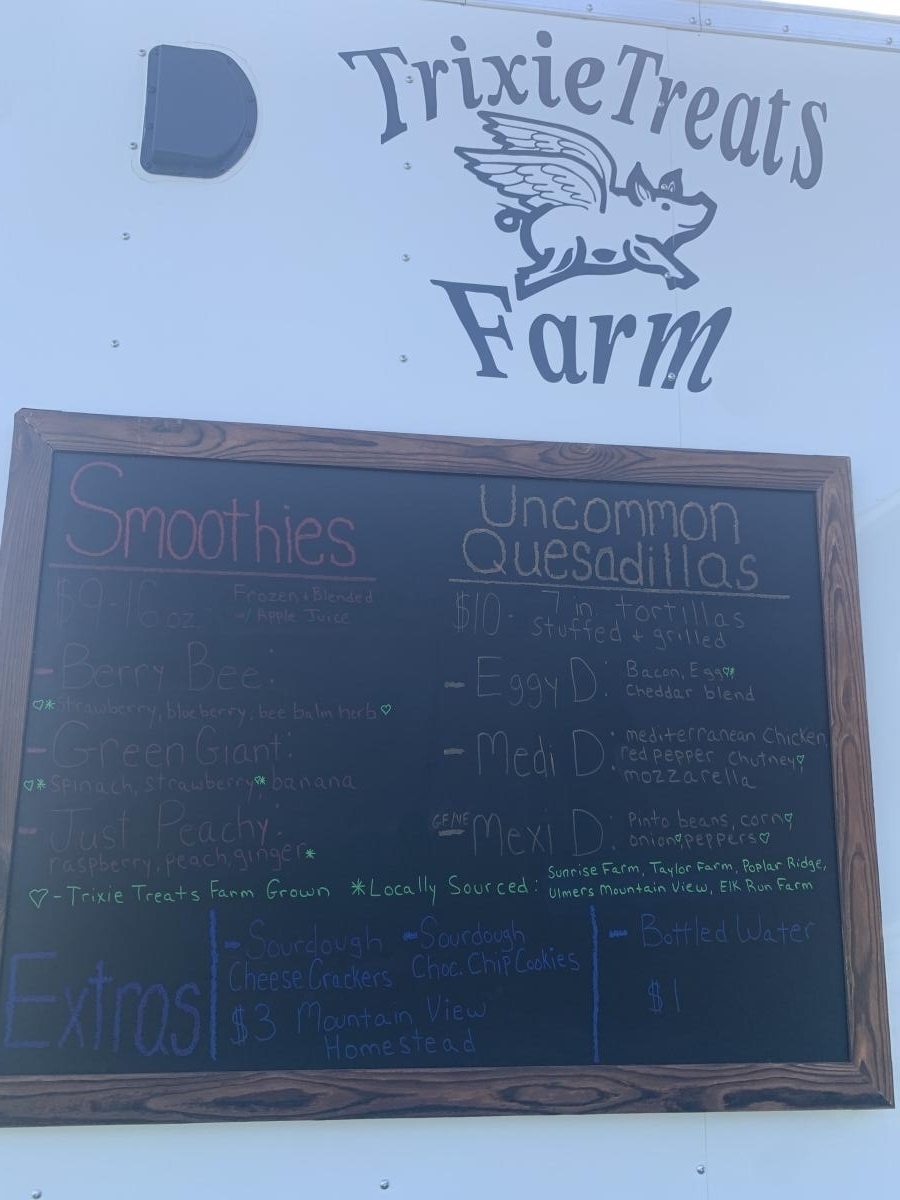 Trixie Treats
Farm
Smoothies
$9-16 oz
Frozen + Blended
w/ Apple Juice
- Berry Bee:
♡* Strawberry, blueberry, bee balm herb ♡
- Green Giant:
♡* Spinach, strawberry♡* banana
- Just Peachy:
raspberry, peach, ginger*
Uncommon
Quesadillas
$10- 7 in tortillas
stuffed + grilled
- Eggy D: Bacon, Egg♡*
Cheddar blend
- Medi D: mediterranean chicken
red pepper chutney♡
mozzarella
- Mexi D: Pinto beans, corn♡
onion♡ peppers♡
♡ - Trixie Treats Farm Grown *Locally Sourced: Sunrise Farm, Taylor Farm, Poplar Ridge,
Ulmers Mountain View, Elk Run Farm
Extras
- Sourdough
Cheese Crackers
- Sourdough
Choc. Chip Cookies
$3 Mountain View
Homestead
- Bottled Water
$1